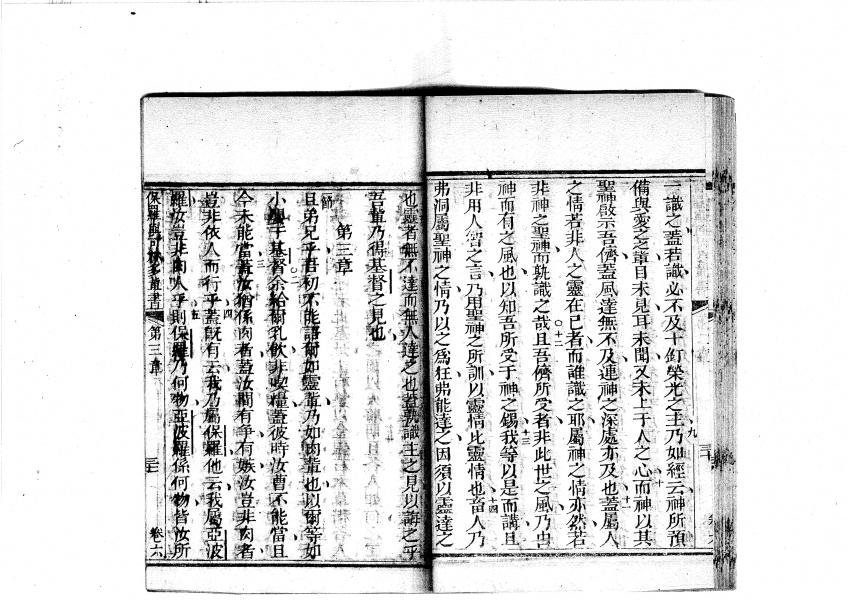 一識之蓋若識必不及十釘榮光之主乃如經云神所預
備與愛之之輩目未見耳未聞又未上于人之心而神以其
聖神啟示吾儕蓋風達無不及連神之深處亦及也蓋屬人
之情若非人之靈在己者而誰識之耶屬神之情亦然若
非神之聖神而孰識之哉且吾儕所受者非此世之風乃由
神而有之風也以知吾所受于神之錫我等以是而講且
非用人智之言乃用聖神之所訓以靈情比靈情也畜人乃
弗洞屬聖神之情乃以之為狂弗能達之因須以靈達之
也靈者無不達而無人達之也蓋孰識主之見以講之乎
吾輩乃得基督之見也
第三章
節
且弟兄乎吾初不能語爾如靈輩乃如肉輩也以爾等如
小學于基督余給爾乳飲非喫糧蓋彼時汝曹不能當且
今未能當蓋汝猶係肉者蓋汝間有爭有嫉汝豈非肉者
豈非依人而行乎蓋既有云我乃屬保羅他云我屬亞波
羅汝豈非肉人乎則保羅乃何物亞波羅係何物皆汝所
保羅與可林多輩書 第三章 卷六
九
十
十一
十二
十三
十四
二
三
四
五